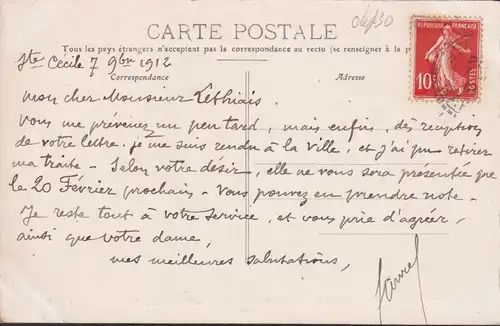 CARTE POSTALE
Tous les pays étrangers n'acceptent pas la correspondance au recto (se renseigner à la p
Correspondance
Adresse
RÉPUBLIQUE FRANÇAISE
10
POSTES
Ste Cécile 7 9bre 1912
Mon cher Monsieur Lethiais
Vous me prévenez un peu tard, mais enfin, dès reception
de votre lettre je me suis rendu à la Ville, et j'ai pu retirer
ma traite - Selon votre désir, elle ne vous sera présentée que
le 20 Février prochain - Vous pouvez en prendre note -
Je reste tout à votre service, et vous prie d'agréer,
ainsi que votre dame,
mes meilleures salutations,